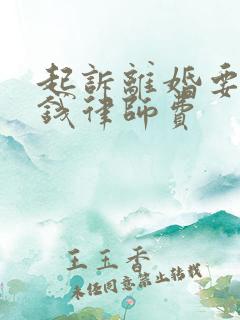 起訴離婚要
錢律師費
王玉香
未经同意禁止转载